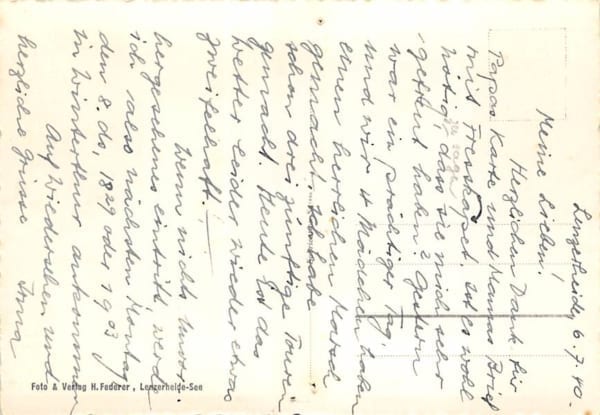 Lenzerheide, 6.7.40.
Meine Lieben!
Herzlichen Dank für
Papas Karte und Mamas Brief
mit Fresskapset. Ist es wohl
nötig zu sagen, dass sie mich sehr
gefreut haben? Gestern
war ein prächtiger Tag,
und wir 4 Mädchen haben
einen herrlichen Marsch
gemacht. Ich habe
schon drei zünftige Touren
gemacht. Heute ist das
Wetter leider wieder etwas
zweifelhaft. —
Wenn nichts Unvor-
hergesehenes eintritt, werde
ich also nächsten Montag
den 8. ds, 1829 oder 1903
in Winterthur ankommen
Auf Wiedersehen und
herzliche Grüsse
Foto & Verlag H. Federer, Lenzerheide-See